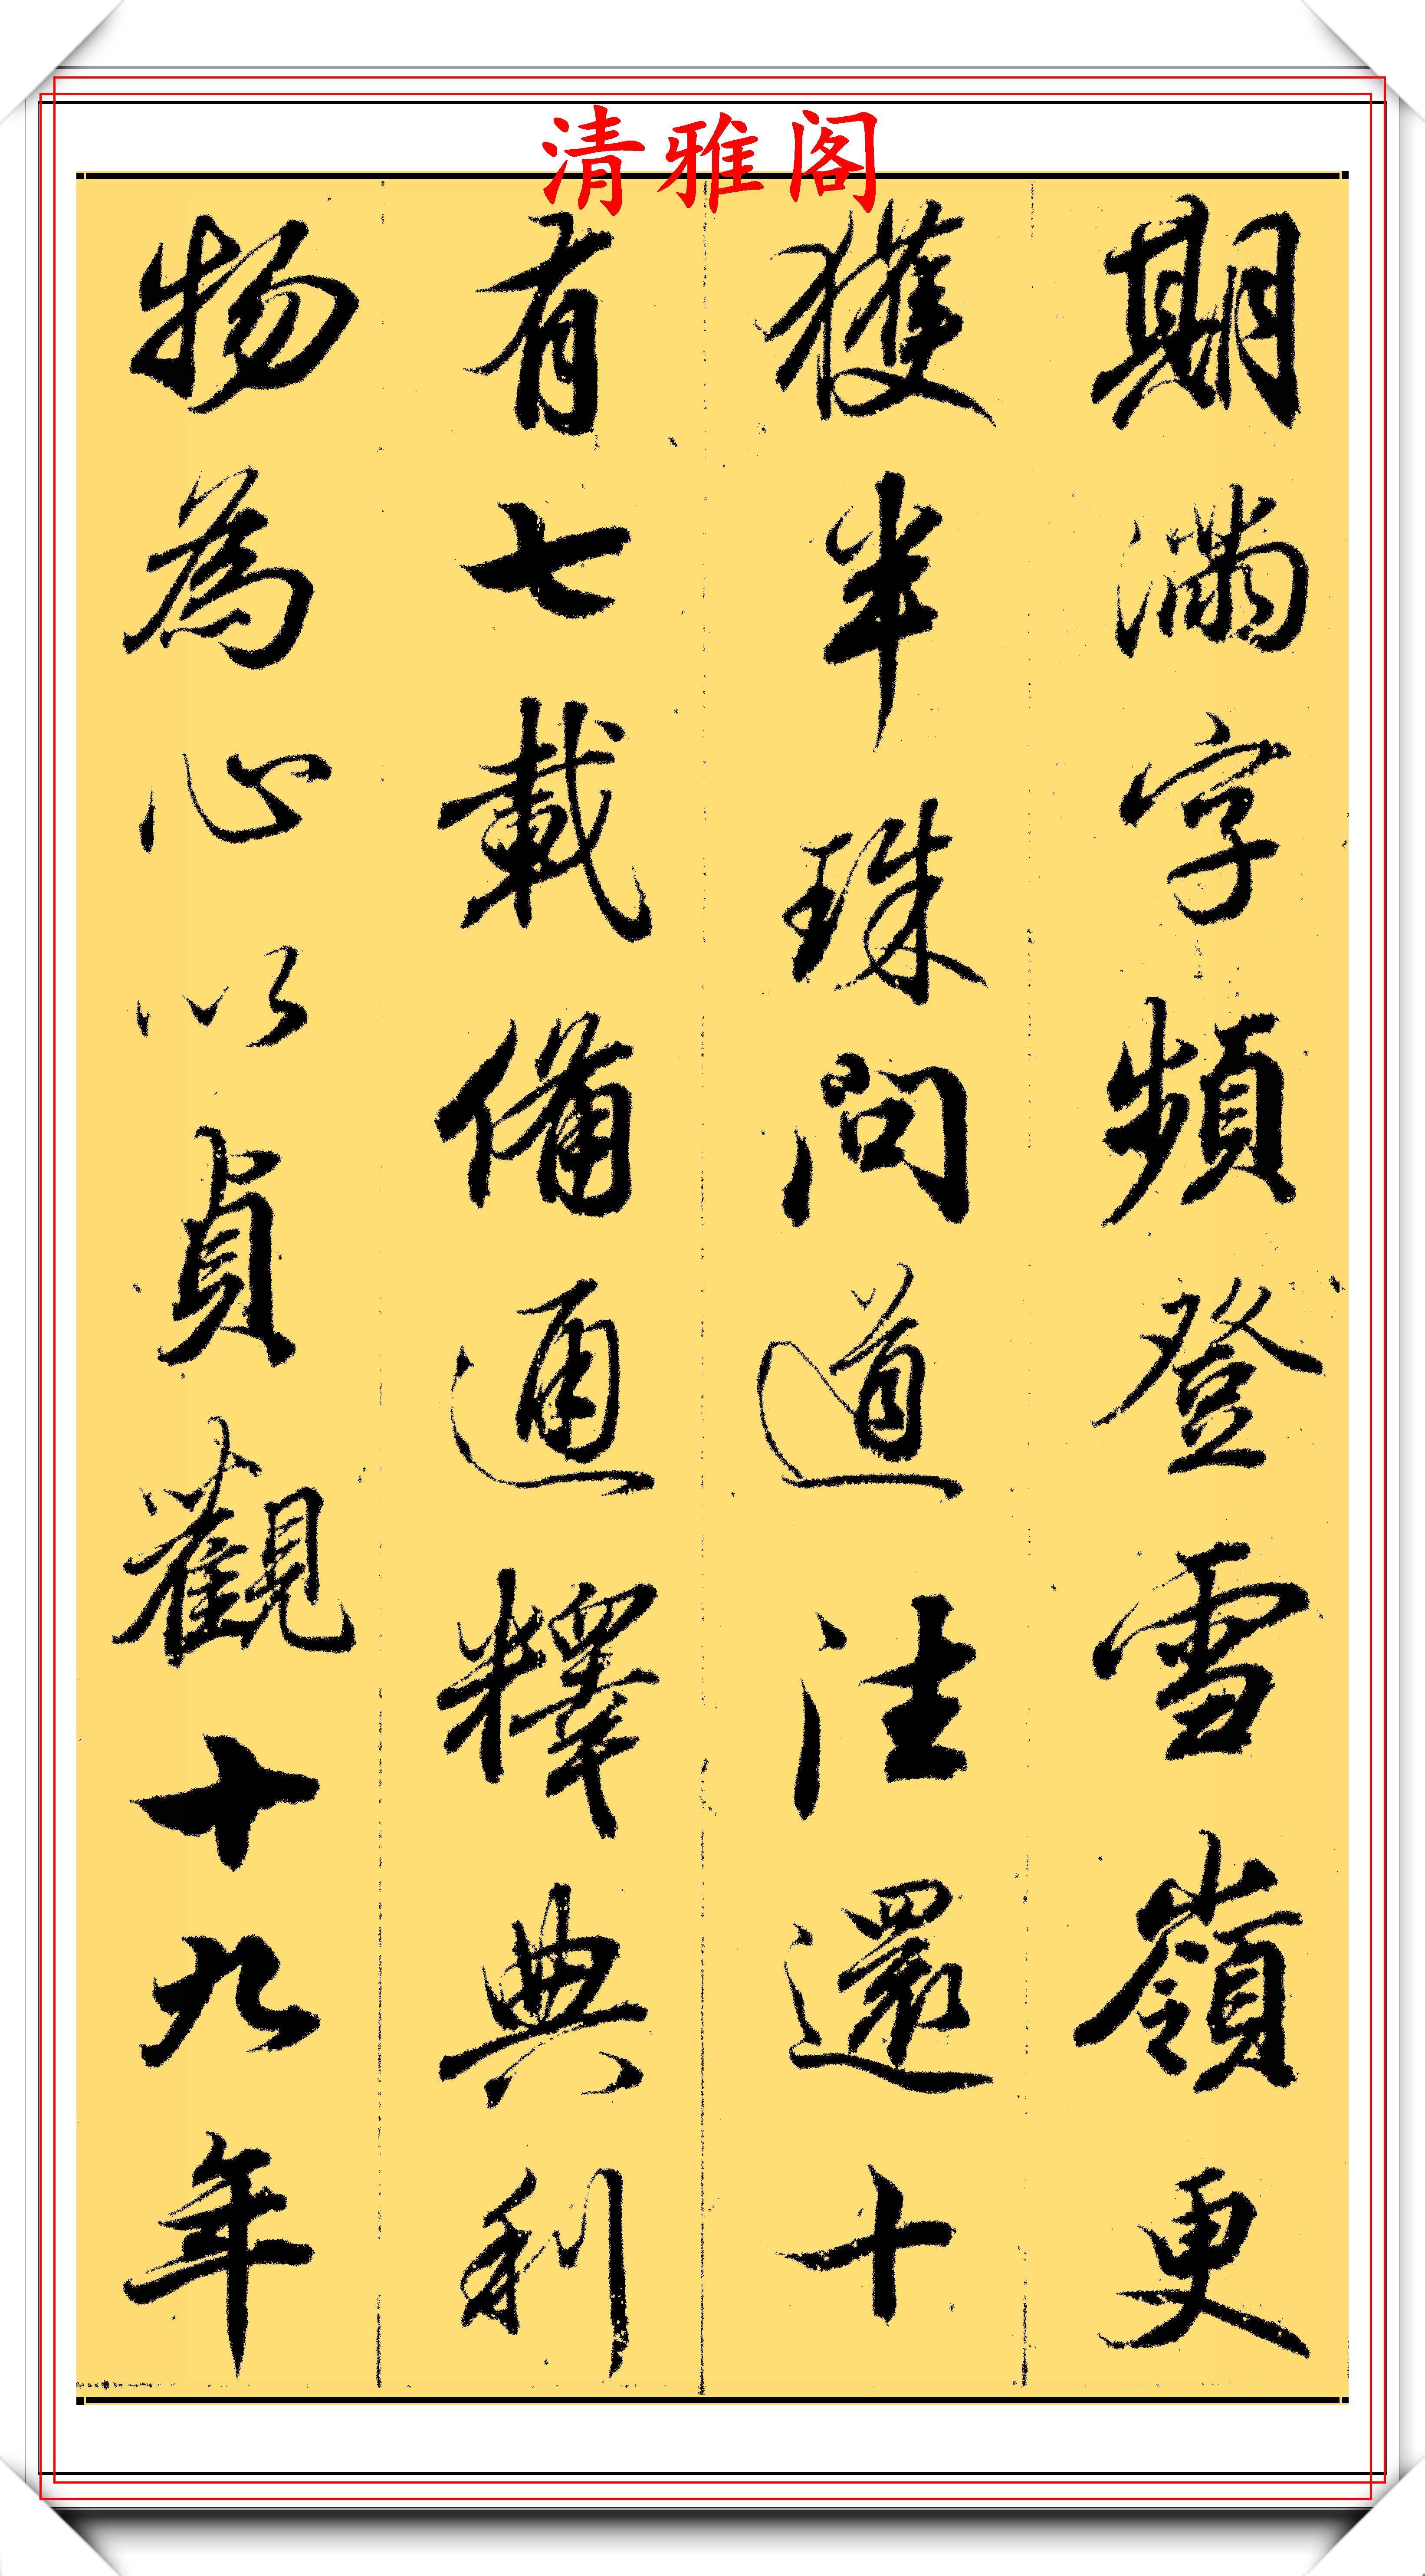 清雅阁
期满字頻登雪嶺更
獲半珠問道法還十
有七載備通釋典利
物為心以貞觀十九年